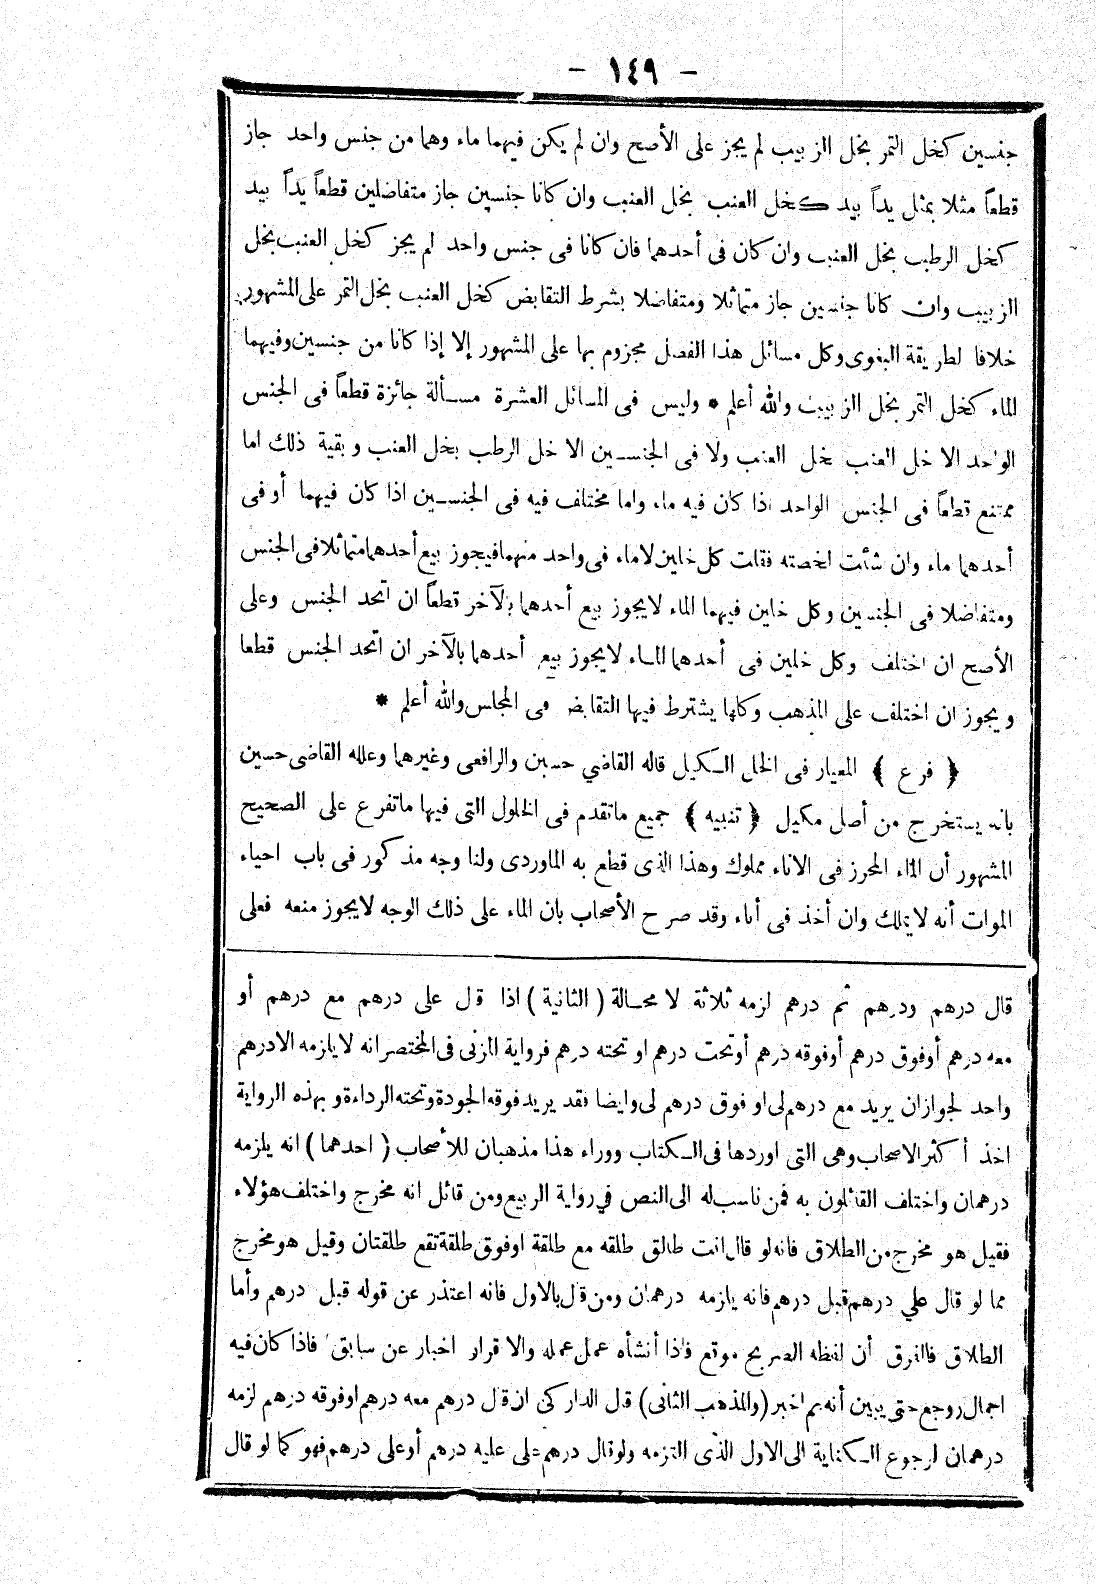 - ١٤٩ -
جنسين كخل التمر بخل الزبيب لم يجز على الأصح وان لم يكن فيهما ماء وهما من جنس واحد جاز
قطعاً مثلا بمثل يداً بيد كخل العنب بخل العنب وان كانا جنسين جاز متفاضلين قطعاً يداً بيد
كخل الرطب بخل العنب وان كان فى أحدهما فان كانا فى جنس واحد لم يجز كخل العنب بخل
الزبيب وان كانا جنسين جاز متماثلا ومتفاضلا بشرط التقابض كخل العنب بخل التمر على المشهور
خلافا لطريقة البغوى وكل مسائل هذا الفصل مجزوم بها على المشهور إلا إذا كانا من جنسين وفيهما
الماء كخل التمر بخل الزبيب والله أعلم * وليس فى المسائل العشرة مسألة جائزة قطعاً فى الجنس
الواحد الا خل العنب بخل العنب ولا فى الجنسين الا خل الرطب بخل العنب وبقية ذلك اما
ممتنع قطعاً فى الجنس الواحد اذا كان فيه ماء واما مختلف فيه فى الجنسين اذا كان فيهما أو فى
أحدهما ماء وان شئت لخصته فقلت كل خلين لاماء فى واحد منهما فيجوز بيع أحدهما متماثلا فى الجنس
ومتفاضلا فى الجنسين وكل خلين فيهما الماء لايجوز بيع أحدهما بالآخر قطعاً ان اتحد الجنس وعلى
الأصح ان اختلف وكل خلين فى أحدهما الماء لايجوز بيع أحدهما بالآخر ان اتحد الجنس قطعا
ويجوز ان اختلف على المذهب وكلها يشترط فيها التقابض فى المجلس والله أعلم *
﴿ فرع ﴾ المعيار فى الخل الكيل قاله القاضي حسين والرافعى وغيرهما وعلله القاضى حسين
بانه يستخرج من أصل مكيل ﴿ تنبيه ﴾ جميع ماتقدم فى الخلول التى فيها ماتفرع على الصحيح
المشهور أن الماء المحرز فى الاناء مملوك وهذا الذى قطع به الماوردى ولنا وجه مذكور فى باب احياء
الموات أنه لايملك وان أخذ فى أناء وقد صرح الأصحاب بان الماء على ذلك الوجه لايجوز منعه فعلى
قال درهم ودرهم ثم درهم لزمه ثلاثة لا محالة ( الثانية ) اذا قال على درهم مع درهم أو
معه درهم أوفوق درهم أوفوقه درهم أوتحت درهم او تحته درهم فرواية المزنى فى المختصر انه لايلزمه الادرهم
واحد لجوازان يريد مع درهم لى او فوق درهم لى وايضا فقد يريد فوقه الجودة وتحته الرداءة وبهذه الرواية
اخذ أكثر الاصحاب وهى التى اوردها فى الكتاب ووراء هذا مذهبان للأصحاب ( احدهما ) انه يلزمه
درهمان واختلف القائلون به فمن ناسب له الى النص في رواية الربيع ومن قائل انه مخرج واختلف هؤلاء
فقيل هو مخرج من الطلاق فانه لو قال انت طالق طلقه مع طلقة اوفوق طلقة تقع طلقتان وقيل هو مخرج
مما لو قال علي درهم قبل درهم فانه يلزمه درهمان ومن قال بالاول فانه اعتذر عن قوله قبل درهم وأما
الطلاق فالفرق أن لفظه الصريح موقع فاذا أنشأه عمل عمله والاقرار اخبار عن سابق فاذا كان فيه
اجمال روجع حتى يبين أنه بم اخبر (والمذهب الثانى) قال الداركى ان قال درهم معه درهم اوفوقه درهم لزمه
درهمان لرجوع الكناية الى الاول الذى التزمه ولوقال درهم على عليه درهم أوعلى درهم فهو كما لو قال